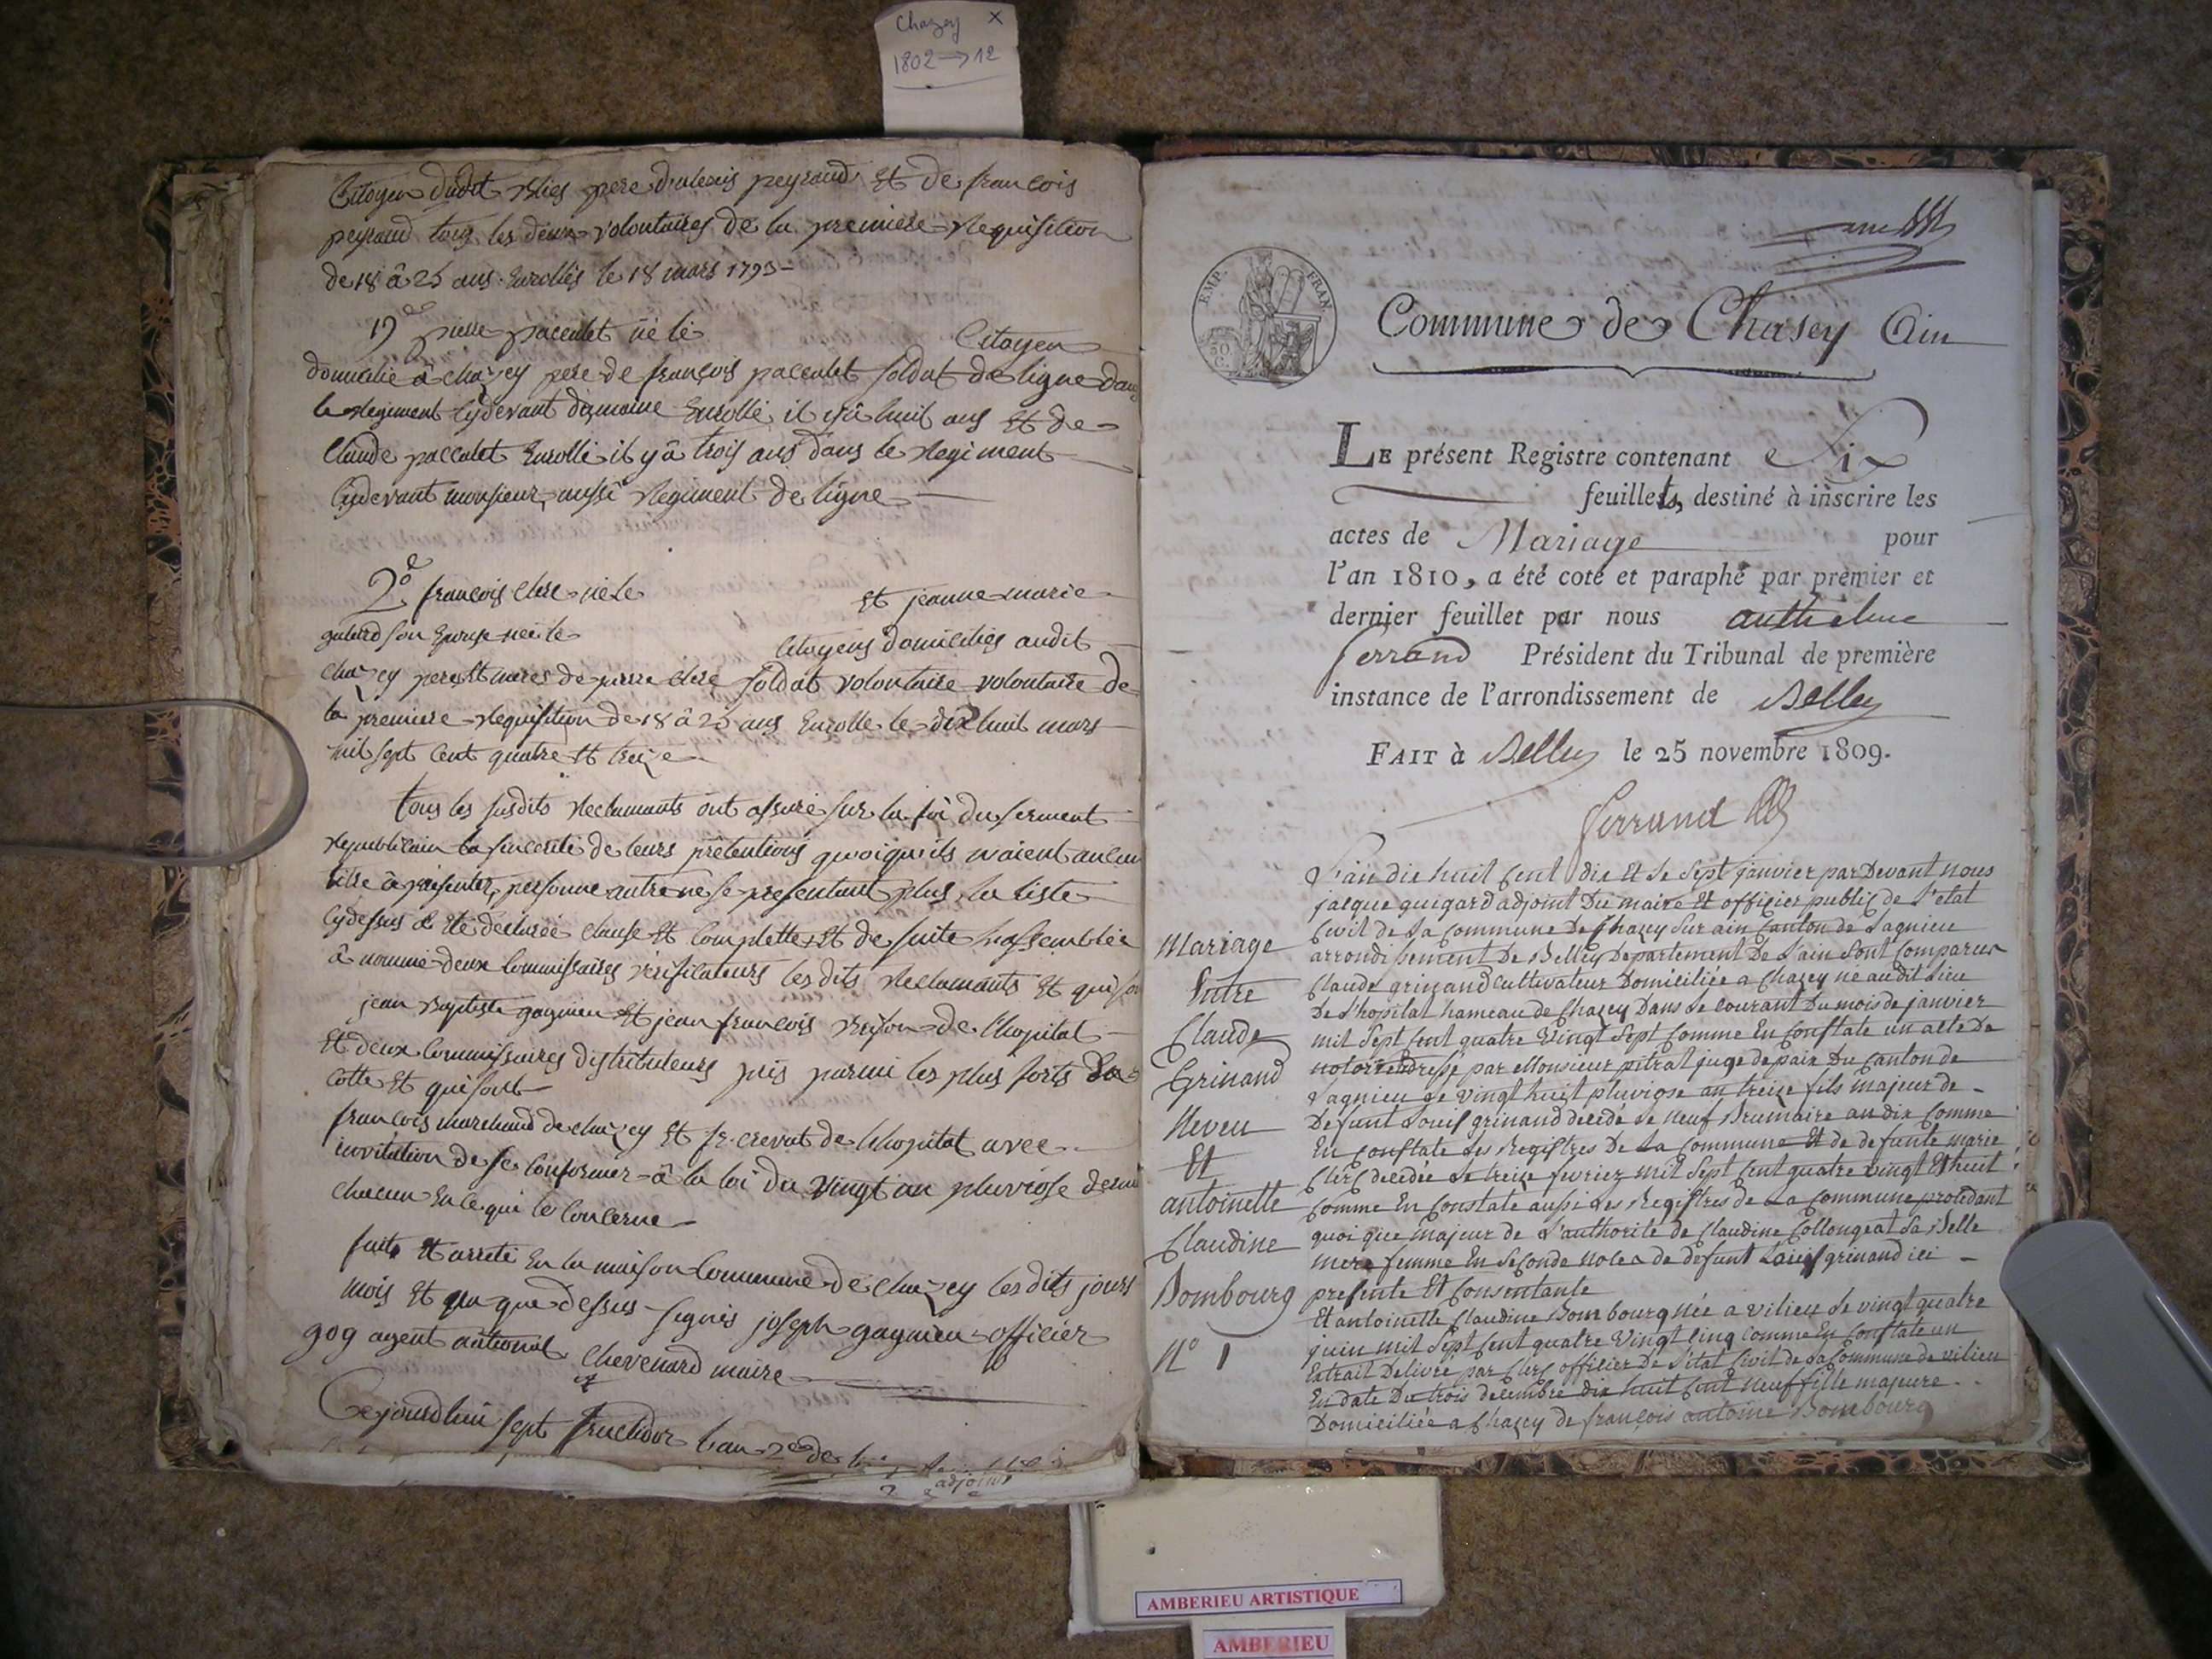 Chazey X
1802 → 12
Citoyen dudit pere d'alexis peyraud Et de francois
peyraud tous les deux volontaires de la premiere requisition
de 18 â 25 ans Enrollés le 18 mars 1793
19e pierre paccalet né le Citoyen
domicilié â chazey pere de françois paccalet soldat de ligne dans
le regiment cydevant Enrollé il yâ huit ans Et de
Claude paccalet Enrollé il yâ trois ans dans le regiment
cydevant monsieur aussi regiment de ligne
francois clerc né le Et jeanne marie
son Epouse née le Citoyens domiciliés audit
chazey peres Et meres de pierre clerc soldat volontaire volontaire de
la premiere requisition de 18 â 25 ans Enrollé le dix huit mars
mil sept cent quatre Et treize
tous les susdits reclamants ont assuré sur la foi du serment
republicain la sincerité de leurs prétentions quoiqu'ils n'aient aucun
titre â presenter, personne autre ne se presentant plus, la liste
cydessus â Eté declarée clause Et complette Et de suite l'assemblée
â nommé deux commissaires vérificateurs les dits reclamants Et qui sont
jean Baptiste gagnieu Et jean françois de l'hopital
Et deux commissaires distributeurs pris parmi les plus forts de
cotte Et qui sont
francois marchand de chazey Et fr. crevat de l'hopital avec
invitation de se conformer â la loi du vingt un pluviose dernier
chacun En ce qui le concerne
fait Et arreté En la maison commune de chazey les dits jours
mois Et an que dessus signés joseph gagnieu officier
gog agent national chevenard maire
Cejourdhui sept fructidor l'an 2e de
adjoint
Commune de Chasey Ain
EMP. FRAN.
LE présent Registre contenant Six
feuillets, destiné à inscrire les
actes de Mariage pour
l'an 1810, a été coté et paraphé par premier et
dernier feuillet par nous anthelme
ferrand Président du Tribunal de première
instance de l'arrondissement de Belley
FAIT à Belley le 25 novembre 1809.
ferrand
Mariage
Entre
Claude
Grinand
Neveu
Et
antoinette
Claudine
Bombourg
N° 1
L'an dix huit Cent dix Et le Sept janvier par Devant nous
jacque guigard adjoint Du maire Et officier public de L'etat
Civil de La Commune De Chazey Sur ain Canton de Lagnieu
arrondissement De Belley Departement De L'ain Sont Comparus
Claude grinand Cultivateur Domiciliée a Chazey né au dit Lieu
De L'hopital hameau de Chazey Dans Le courant Du mois de janvier
mil Sept Cent quatre Vingt Sept Comme En Constate un acte De
notorieté dressé par Monsieur pitrat juge de paix Du Canton de
Lagnieu Le Vingt huit pluviose an treize fils majeur de
Defunt Louis grinand decedé Le neuf Brumaire an dix Comme
En Constate Les Registres De La Commune Et de defunte marie
Clerc decedée Le treize fevrier mil Sept Cent quatre vingt Et huit
Comme En Constate aussi Les Registres de La Commune procedant
quoi que majeur de L'authorité de Claudine Collongeat Sa Belle
mere femme En Seconde noces de defunt Louis grinand ici
presente Et Consentante
Et antoinette Claudine Bombourg née a vilieu Le vingt quatre
juin mil Sept Cent quatre Vingt Cinq Comme En Constate un
Extrait Delivré par Clerc officier De L'etat Civil de La Commune de vilieu
En date Du trois decembre dix huit Cent neuf fille majeure
Domiciliée a Chazey de françois antoine Bombourg
AMBERIEU ARTISTIQUE
AMBERIEU